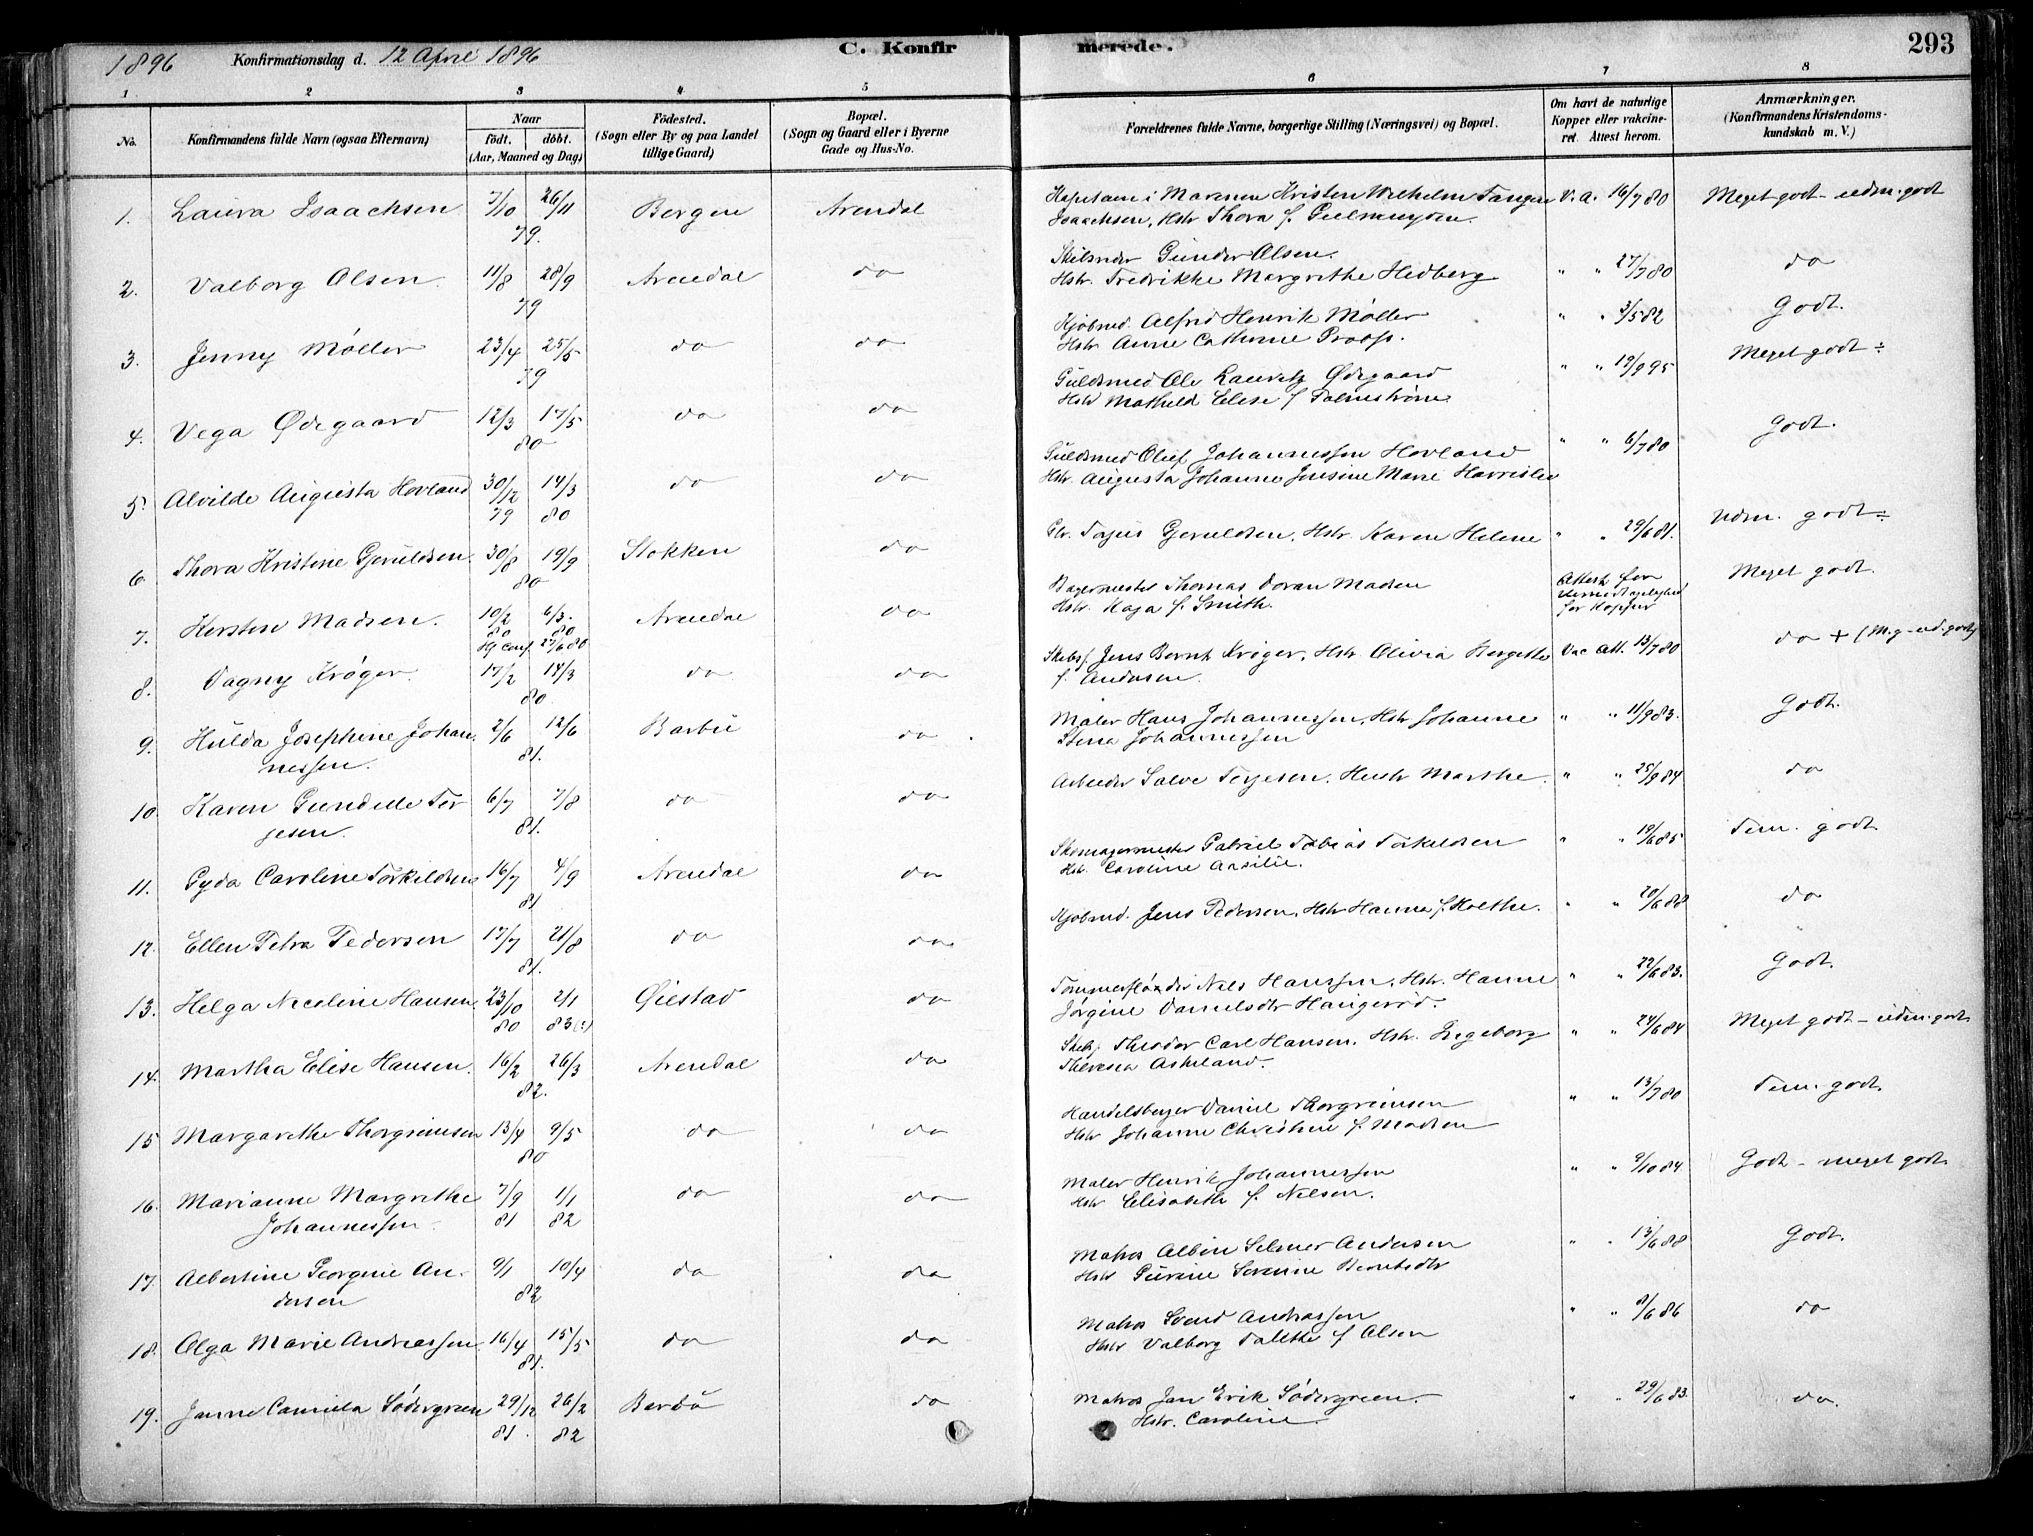 1896 Konfirmationsdag d. 12 April 1896 C. Konfirmerede. 293
1 2 3 4 5 6 7 8
No. Konfirmandens fulde Navn (ogsaa Efternavn) Naar født. døbt. (Aar, Maaned og Dag) Födested. (Sogn eller By og paa Landet tillige Gaard) Bopæl. (Sogn og Gaard eller i Byerne Gade og Hus-No. Forældrenes fulde Navne, borgerlige Stilling (Næringsvei) og Bopæl. Om havt de naturlige Kopper eller vakcineret. Attest herom. Anmærkninger. (Konfirmandens Kristendomskundskab m. V.)
1. Laura Isaachsen 7/10 26/11 79. Bergen Arendal Kapitain i Marinen Kristen Wilhelm Tangen V. A. 16/7 80 Meget godt - udm. godt
Isaachsen, Hstr Thora f.
2. Valborg Olsen. 11/8 28/9 79 Arendal do Gunder Olsen. " " 27/7 80 do
Hstr. Fredrikke Margrethe Hedberg
3. Jenny Møller 23/4 25/5 79 do do Kjøbmd. Alfred Henrik Møller " " 3/5 82 Godt.
Hstr Anne Cathrine
4. Vega Ødegaard 12/3 17/5 80 do do Guldsmed Ole Lauritz Ødegaard " " 19/9 95 Meget godt ÷
Hstr Mathild Elise f. Palmestrøm
5. Alvilde Augusta Hovland 30/12 79 14/3 80 do do Guldsmed Oluf Johannessen Hovland " " 6/7 80 Godt.
Hstr. Augusta Johanne Jensine Marie
6. Thora Kristine Gjeruldsen. 30/8 19/9 80 Stokken do Tajus Gjeruldsen, Hstr. Karen Helene " " 29/6 81. Udm. godt ÷
7. Kersten Madsen. 10/2 80 6/3. 80 Arendal do Bagermester Thomas Madsen Attest for Meget godt.
Hstr. Kaja f. Smith. for Kopper
Hj conf. 27/6 80
8. Dagny Krøger. 17/2 14/3 80 do do Skibsf. Jens Bernt Krøger, Hstr. Olivia Bergitte Vac Att. 13/7 80 do + (M.g - ud. godt)
f. Andersen.
9. Hulda Josephine Johan- 2/6 12/6 81. Barbu do. Maler Hans Johannessen, Hstr Johanne " " 11/9 83. Godt.
nessen. Stena Johannessen
10. Karen Gundelle Ter- 6/7 7/8 81. do do Arbeider Salve Terjesen, Hustr Marthe. " " 25/9 84 do
jesen.
11. Gyda Caroline Torkeldsen 16/7 4/9 81 Arendal do Skomagermester Gabriel Tobias Torkeldsen " " 19/6 85 Tem. godt
Hstr. Caroline
12. Ellen Petra Pedersen 17/7 21/8 81. do do Kjøbmd. Jens Pedersen, Hstr Hanna f. Holthe. " " 20/6 88 do
13. Helga Nicoline Hansen. 23/10 80 2/1 83(?) Øiestad do Tømmerfløder Nils Hanssen, Hstr. Hanne " " 22/6 83. Godt.
Jørgine Danielsdtr Haugerød.
14. Martha Elise Hansen. 16/2 26/3 82. Arendal do Skibsf. Theodor Carl Hansen, Hstr. Ingeborg " " 24/6 84 Meget godt - udm. godt
Theresia Askeland.
15 Margarethe Thorgrimsen 13/4 9/5 80 do do Handelsborger Daniel Thorgrimsen " " 13/7 80 Tem. godt.
Hstr Johanne Christine f. Madsen
16. Marianne Margrethe 7/9 81 1/1 82 do do Maler Henrik Johannessen " " 9/10 84. Godt - meget godt
Johannessen Hstr Elisabeth f. Nielsen.
17. Albertine Georgine An- 9/1 10/4 82 do do Matros Albin Selmer Andersen " " 13/6 88 Godt.
dersen Hstr Gurine Serenne Berntsdtr
18. Olga Marie Andreassen 16/4 15/5 81. do do Matros Svend Andreassen " " 8/6 86 do
Hstr Valborg Talette f. Olsen
19. Janne Camilla Södergreen 29/12 81. 26/2 82 Barbu do Matros Jan Erik Södergreen. " " 29/6 83. do.
Hstr. Caroline.